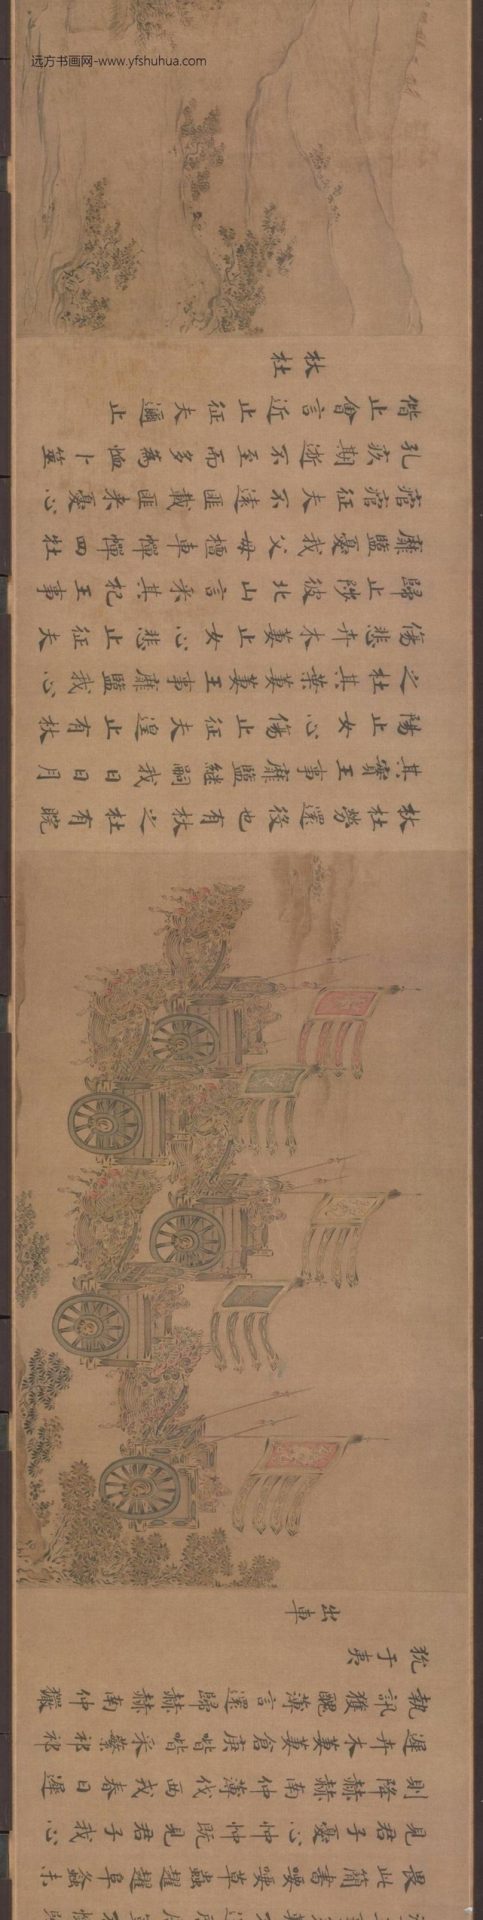 畏此簡書喓喓草蟲趯趯阜螽未
見君子憂心忡忡既見君子我心
則降赫赫南仲薄伐西戎春日遲
遲卉木萋萋倉庚喈喈采蘩祁祁
執訊獲醜薄言還歸赫赫南仲玁
狁于夷
出車
杕杜勞還役也有杕之杜有睆
其實王事靡盬繼嗣我日日月
陽止女心傷止征夫遑止有杕
之杜其葉萋萋王事靡盬我心
傷悲卉木萋止女心悲止征夫
歸止陟彼北山言采其杞王事
靡盬憂我父母檀車幝幝四牡
痯痯征夫不遠匪載匪來憂心
孔疚期逝不至而多為恤卜筮
偕止會言近止征夫邇止
杕杜
远方书画网-www.yfshuhua.com